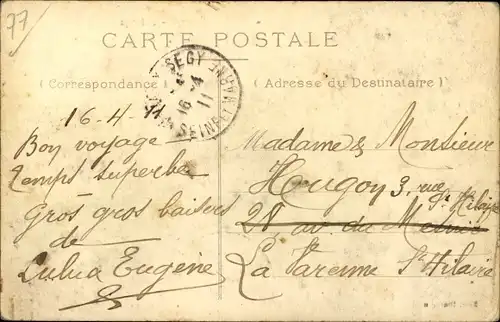 77
CARTE POSTALE
SEGY
16 -4
11
SEINE-ET-MARNE
( Correspondance )
( Adresse du Destinataire )
16-4-11
Bon voyage
Temps superbe
Gros gros baisers
de
Eugène
Madame & Monsieur
Hougoy 3, rue
St Hilaire
28 av. du Mesnil
La Varenne St Hilaire